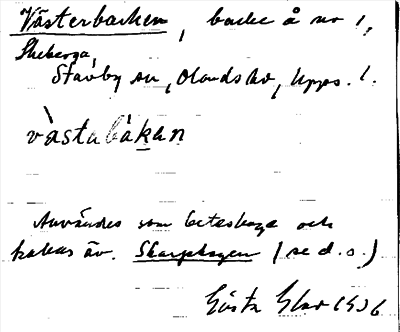 Västerbacken, backe å no 1,
Skeberga,
Stavby sn, Olands hd, Upps. l.
vàstabákan
Användes som beteshage och
kallas äv. Skarphagen (se d.o.)
Gösta 1936